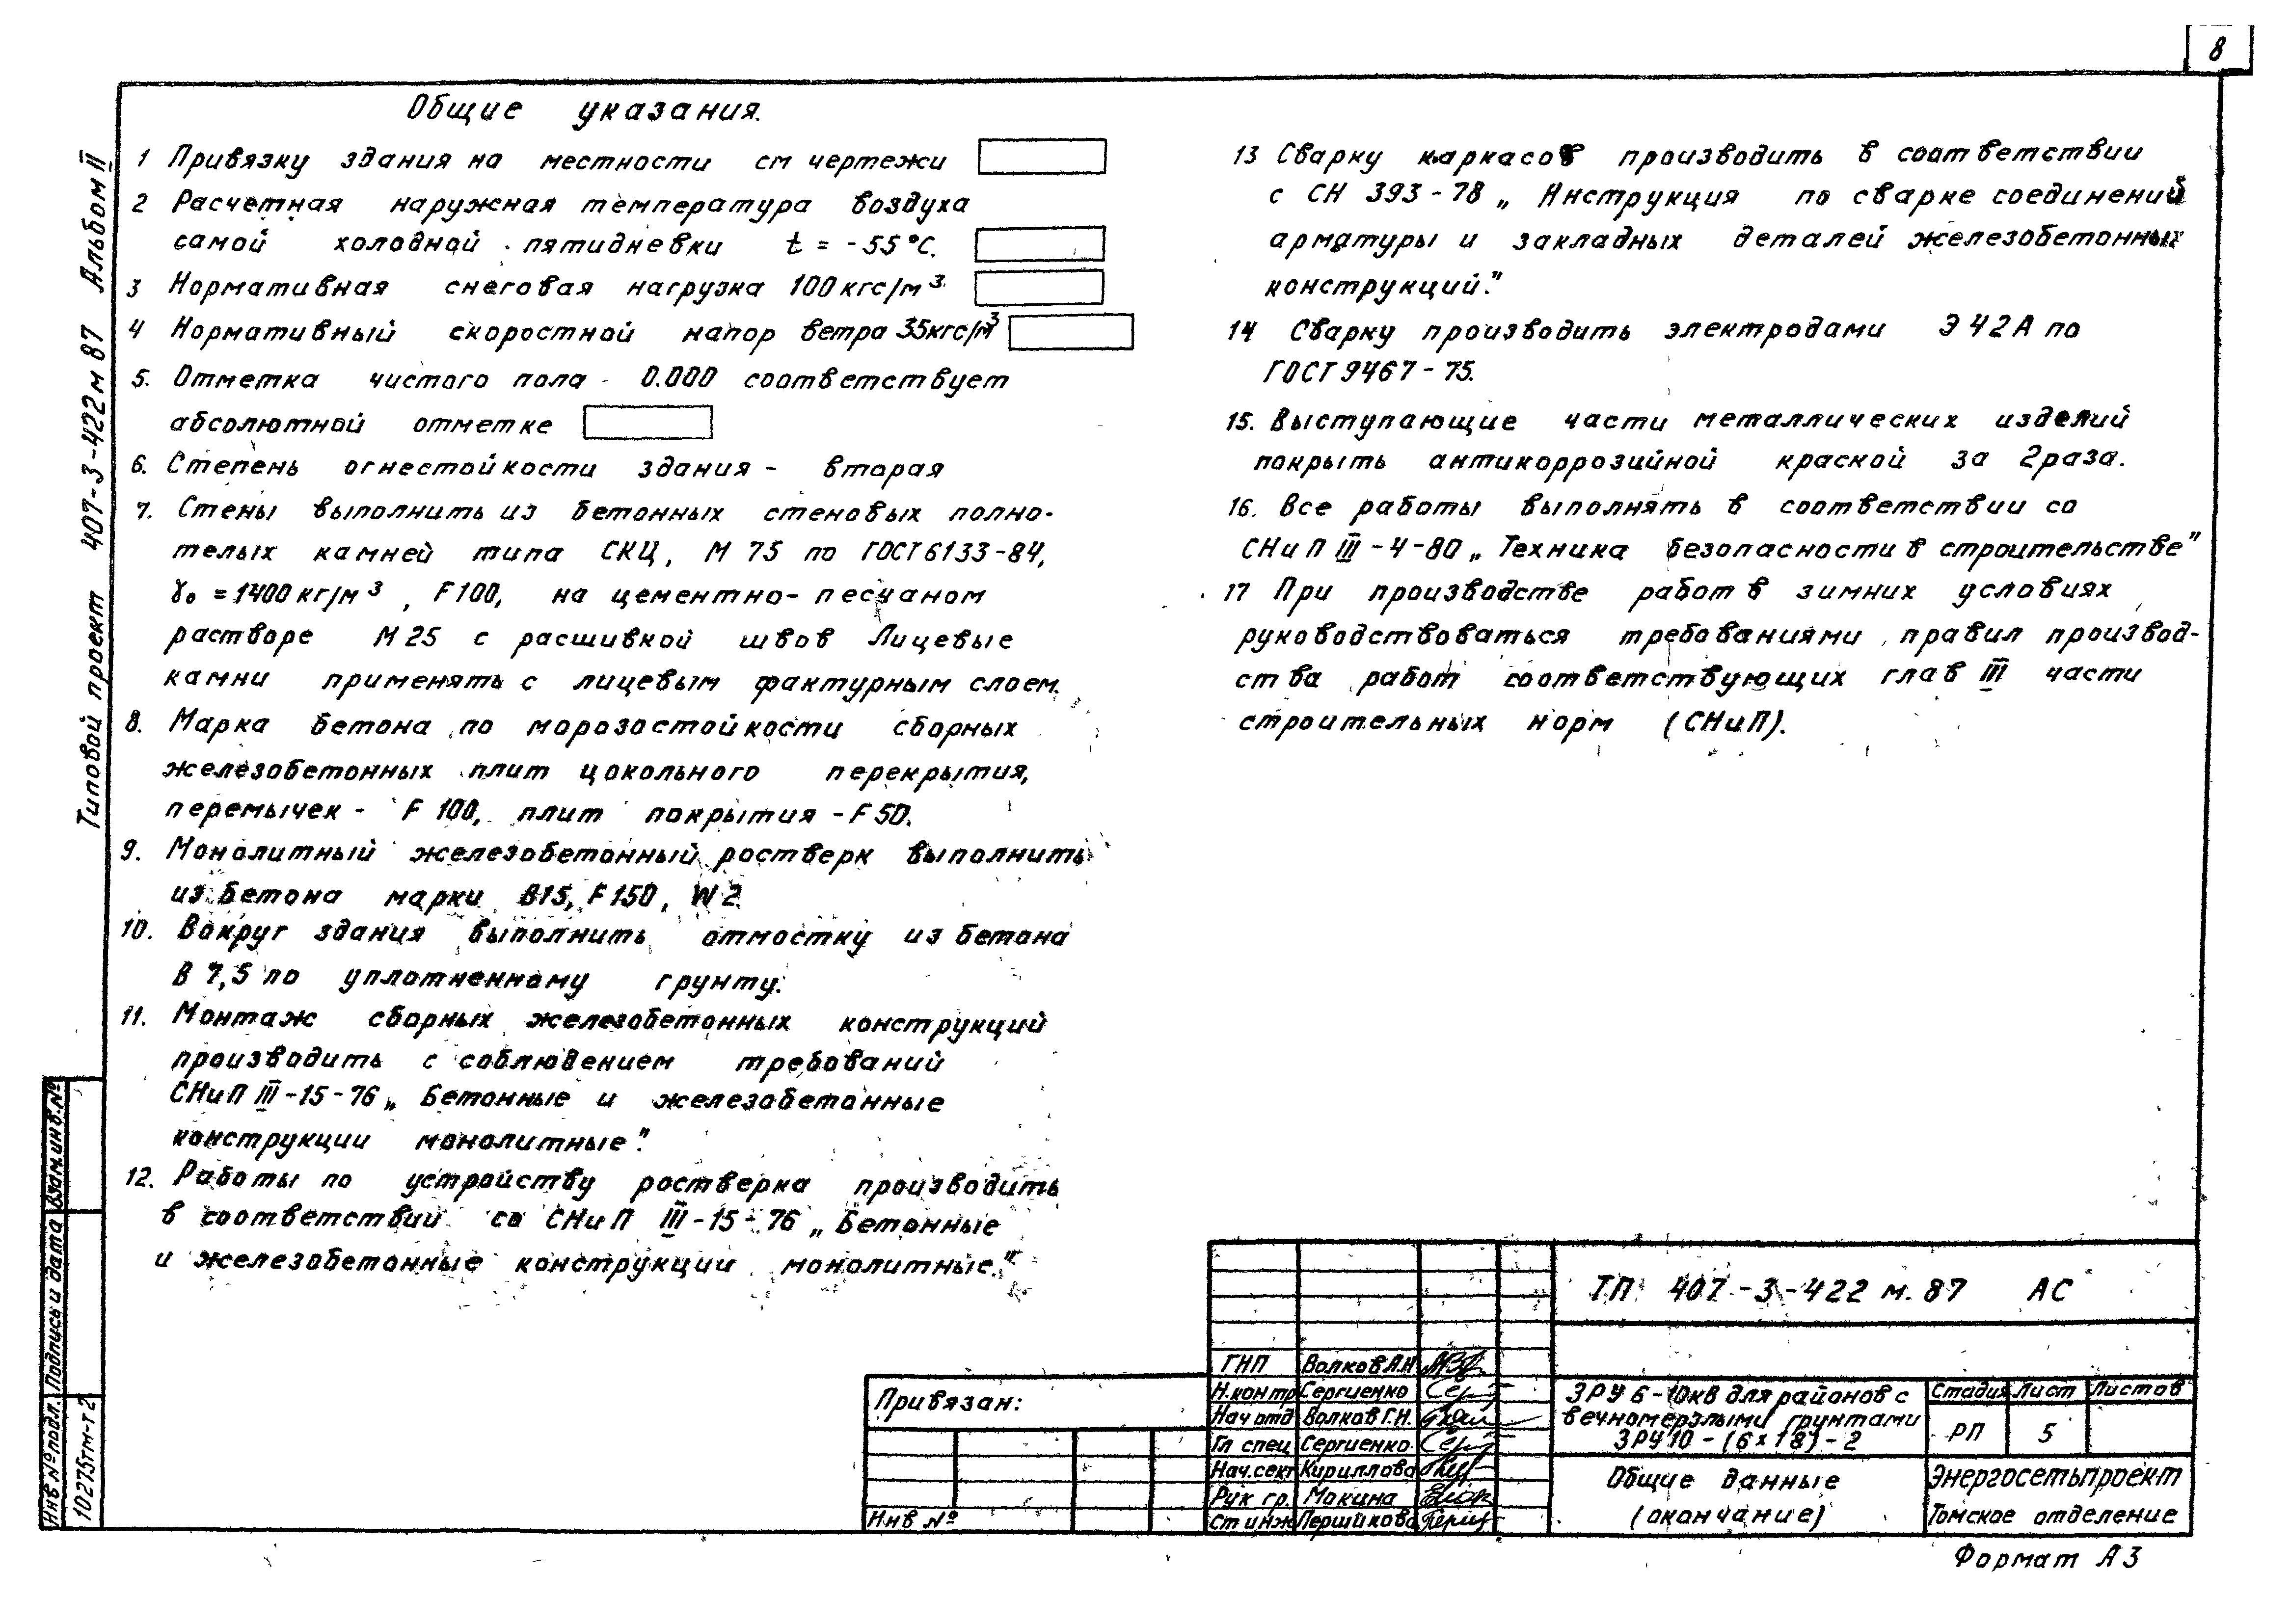 8
Общие указания.
1 Привязку здания на местности см чертежи
2 Расчетная наружная температура воздуха
самой холодной пятидневки t = -55°С.
3 Нормативная снеговая нагрузка 100кгс/м³
4 Нормативный скоростной напор ветра 35кгс/м³
5. Отметка чистого пола 0.000 соответствует
абсолютной отметке
6. Степень огнестойкости здания - вторая
7. Стены выполнить из бетонных стеновых полно-
телых камней типа СКЦ, М 75 по ГОСТ 6133-84,
γ₀ = 1400 кг/м³, F100, на цементно-песчаном
растворе М 25 с расшивкой швов Лицевые
камни применять с лицевым фактурным слоем.
8. Марка бетона по морозостойкости сборных
железобетонных плит цокольного перекрытия,
перемычек - F 100, плит покрытия - F 50.
9. Монолитный железобетонный ростверк выполнить
из бетона марки В15, F150, W2
10. Вокруг здания выполнить отмостку из бетона
В 7,5 по уплотненному грунту.
11. Монтаж сборных железобетонных конструкций
производить с соблюдением требований
СНиП III-15-76 „Бетонные и железобетонные
конструкции монолитные".
12. Работы по устройству ростверка производить
в соответствий со СНиП III-15-76 „Бетонные
и железобетонные конструкции монолитные."
13 Сварку каркасов производить в соответствии
с СН 393-78 „Инструкция по сварке соединений
арматуры и закладных деталей железобетонных
конструкций."
14 Сварку производить электродами Э 42А по
ГОСТ 9467-75.
15. Выступающие части металлических изделий
покрыть антикоррозийной краской за 2 раза.
16. Все работы выполнять в соответствии со
СНиП III-4-80 „Техника безопасности в строительстве"
17 При производстве работ в зимних условиях
руководствоваться требованиями правил производ-
ства работ соответствующих глав III части
строительных норм (СНиП).
Типовой проект 407-3-422м87 Альбом II
Взам.инв.№
Подпись и дата
Инв № подл.
10275тм-т2
Привязан:
Инв №
ГИП Волков А.Н
Н.контр Сергиенко
Нач отд Волков Г.Н.
Гл спец Сергиенко
Нач.сект Кириллова
Рук гр. Мокина
Ст инж Першикова
ТП 407-3-422 м. 87 АС
ЗРУ 6-10кВ для районов с
вечномерзлыми грунтами
ЗРУ10-(6×18)-2
Стадия Лист Листов
РП 5
Общие данные
(окончание)
Энергосетьпроект
Томское отделение
Формат А3